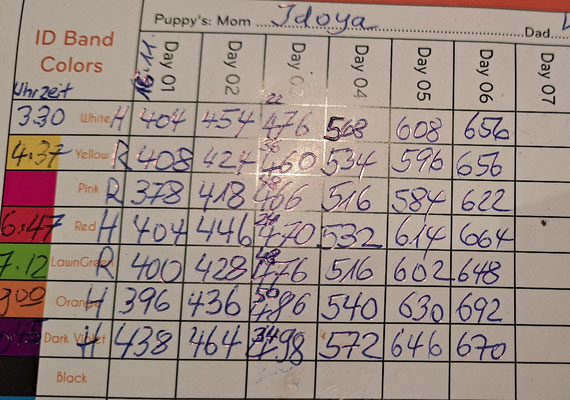 Puppy's: Mom Idoya Dad
ID Band Colors
Uhrzeit 16.11 Day 01 Day 02 Day 03 Day 04 Day 05 Day 06 Day 07
3:30 White H 404 454 22 476 568 608 656
4:37 Yellow R 408 424 36 460 534 596 656
Pink R 378 418 48 466 516 584 622
6:47 Red H 404 446 24 470 532 614 664
7:12 LawnGreen R 400 428 48 476 516 602 648
Orange H 396 436 50 486 540 630 692
Dark Violet H 438 464 34 498 572 646 670
Black